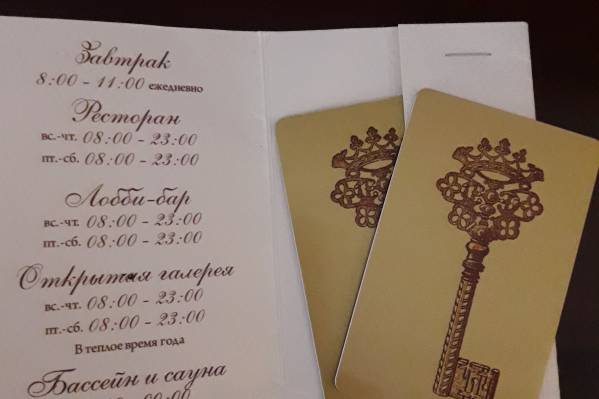 Завтрак
8:00 - 11:00 ежедневно
Ресторан
вс.-чт. 08:00 - 23:00
пт.-сб. 08:00 - 23:00
Лобби-бар
вс.-чт. 08:00 - 23:00
пт.-сб. 08:00 - 23:00
Открытая галерея
вс.-чт. 08:00 - 23:00
пт.-сб. 08:00 - 23:00
В теплое время года
Бассейн и сауна